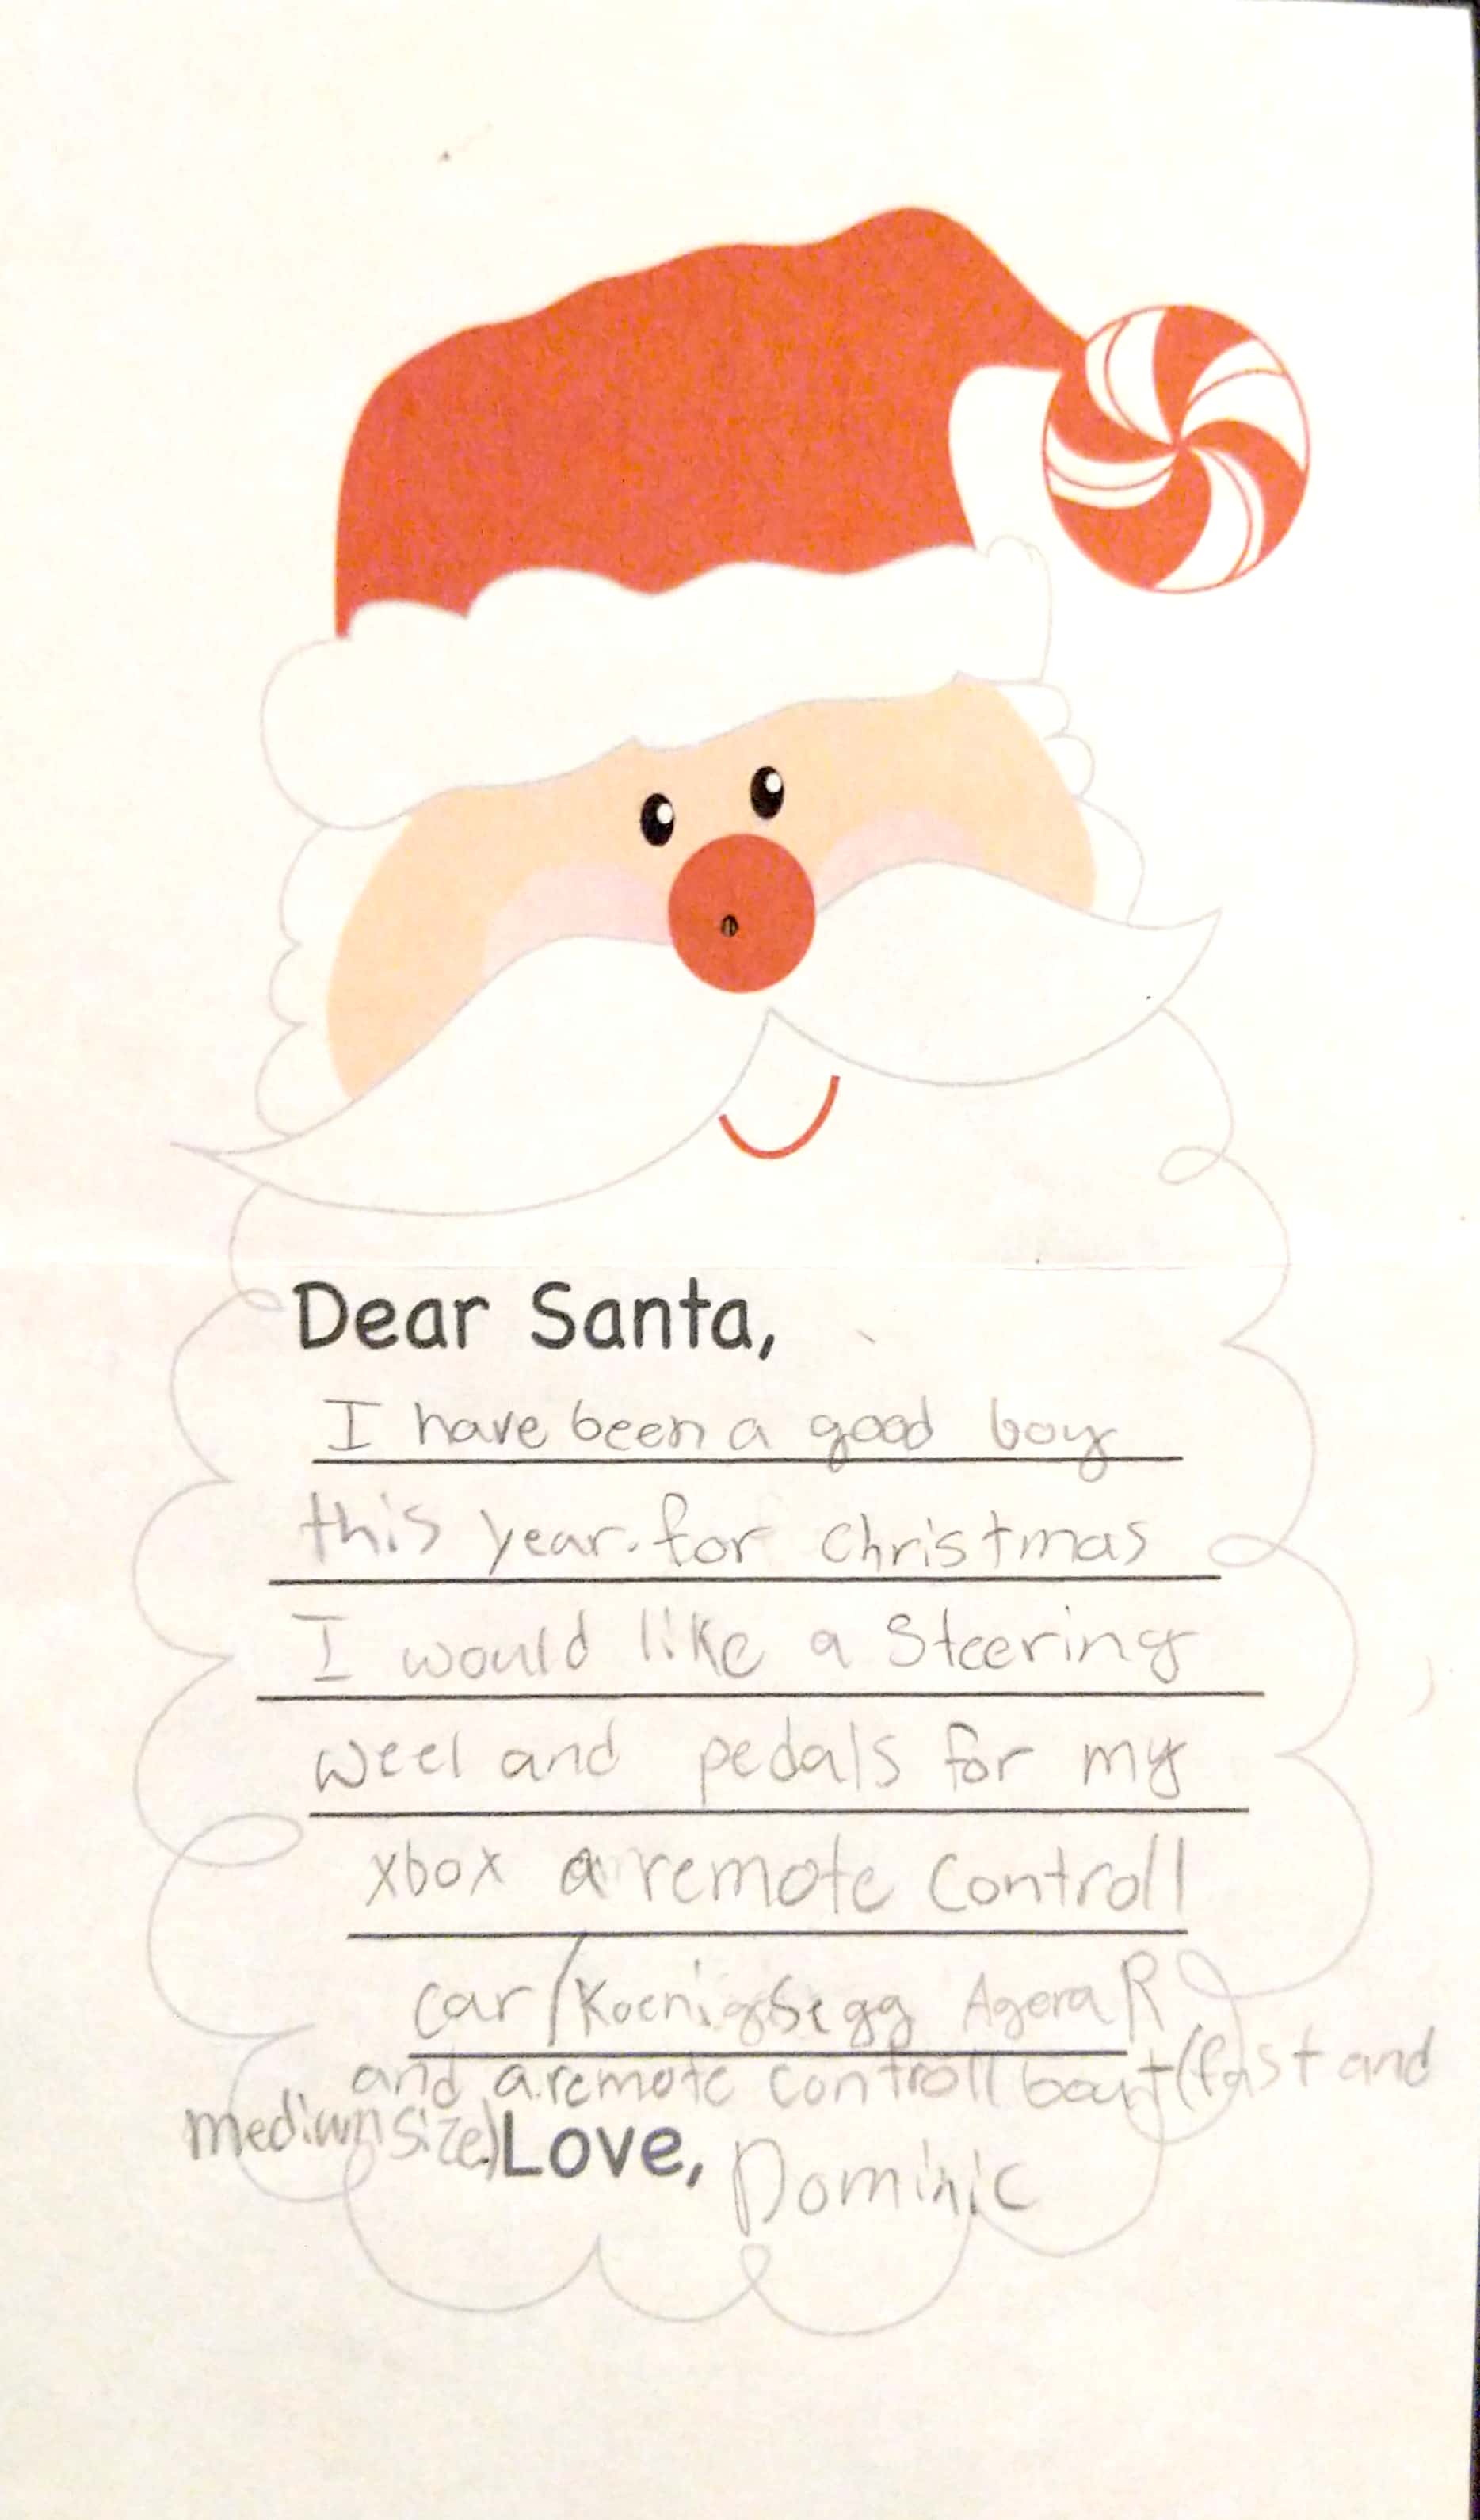 Dear Santa,
I have been a good boy
this year. for christmas
I would like a Steering
weel and pedals for my
xbox a remote controll
car/Koenigsegg Agera R
and a remote controll boat (fast and
medium size)
Love, Dominic